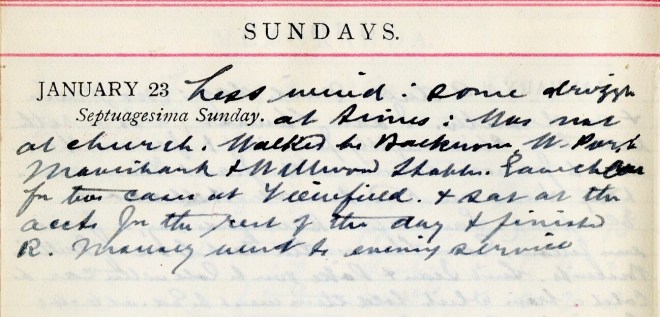 SUNDAYS.
JANUARY 23 Less wind : some drizzle
Septuagesima Sunday. at times : Was not
at church. Walked to W. Park
Mavisbank & Wellwood Stables.
for two cases at Viewfield. & sat at the
accts for the rest of the day & finished
R. went to evening service